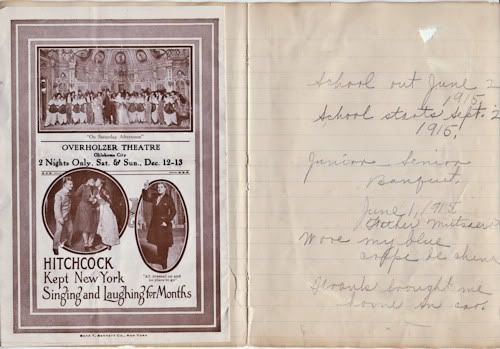 "On Saturday Afternoon"
OVERHOLZER THEATRE
Oklahoma City
2 Nights Only, Sat. & Sun., Dec. 12-13
"All dressed up and
no place to go"
HITCHCOCK
Kept New York
Singing and Laughing for Months
School out June 2
1915
School starts Sept. 2
1915,
Junior Senior
Banquet.
June 1, 1915
Wore my blue
crepe de chine
brought me
home in car.